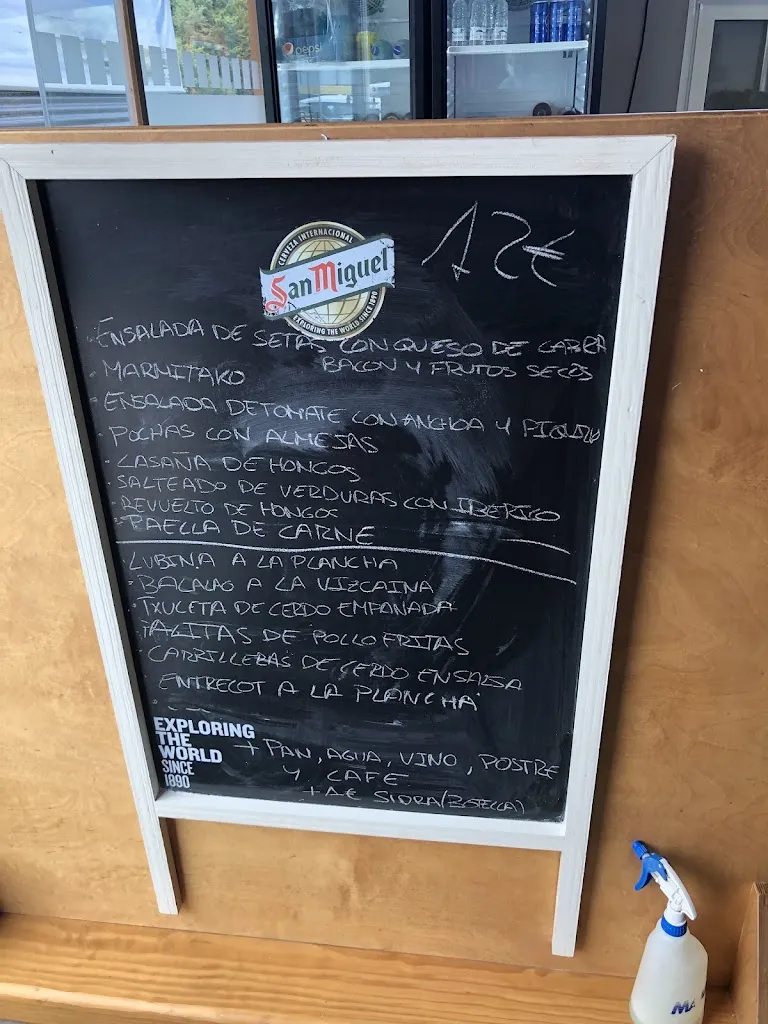 pepsi
CERVEZA INTERNACIONAL
San Miguel
EXPLORING THE WORLD SINCE 1890
12€
· ENSALADA DE SETAS CON QUESO DE CABRA
BACON Y FRUTOS SECOS
· MARMITAKO
· ENSALADA DE TOMATE CON ANCHOA Y
· POCHAS CON ALMEJAS
· LASAÑA DE HONGOS
· SALTEADO DE VERDURAS CON IBERICO
· REVUELTO DE HONGOS
· PAELLA DE CARNE
· LUBINA A LA PLANCHA
· BACALAO A LA VIZCAINA
· TXULETA DE CERDO EMPANADA
· ALITAS DE POLLO FRITAS
· CARRILLERAS DE CERDO EN SALSA
ENTRECOT A LA PLANCHA
EXPLORING
THE
WORLD
SINCE
1890
+ PAN, AGUA, VINO, POSTRE
Y CAFE
+1€ SIDRA (BOTELLA)